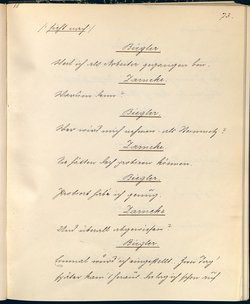 73.
/: geht nach :/
Biegler
Weil ich als Arbeiter gegangen bin.
Zarncke
Warum denn?
Biegler
Wer wird mich nehmen als
Zarncke
Sie hätten doch probieren können.
Biegler.
Probiert hab ich genug.
Zarncke
Und überall abgewiesen?
Biegler
Einmal wurd ich eingestellt. Zwei Tag!
Später kam's heraus, daß ich schon